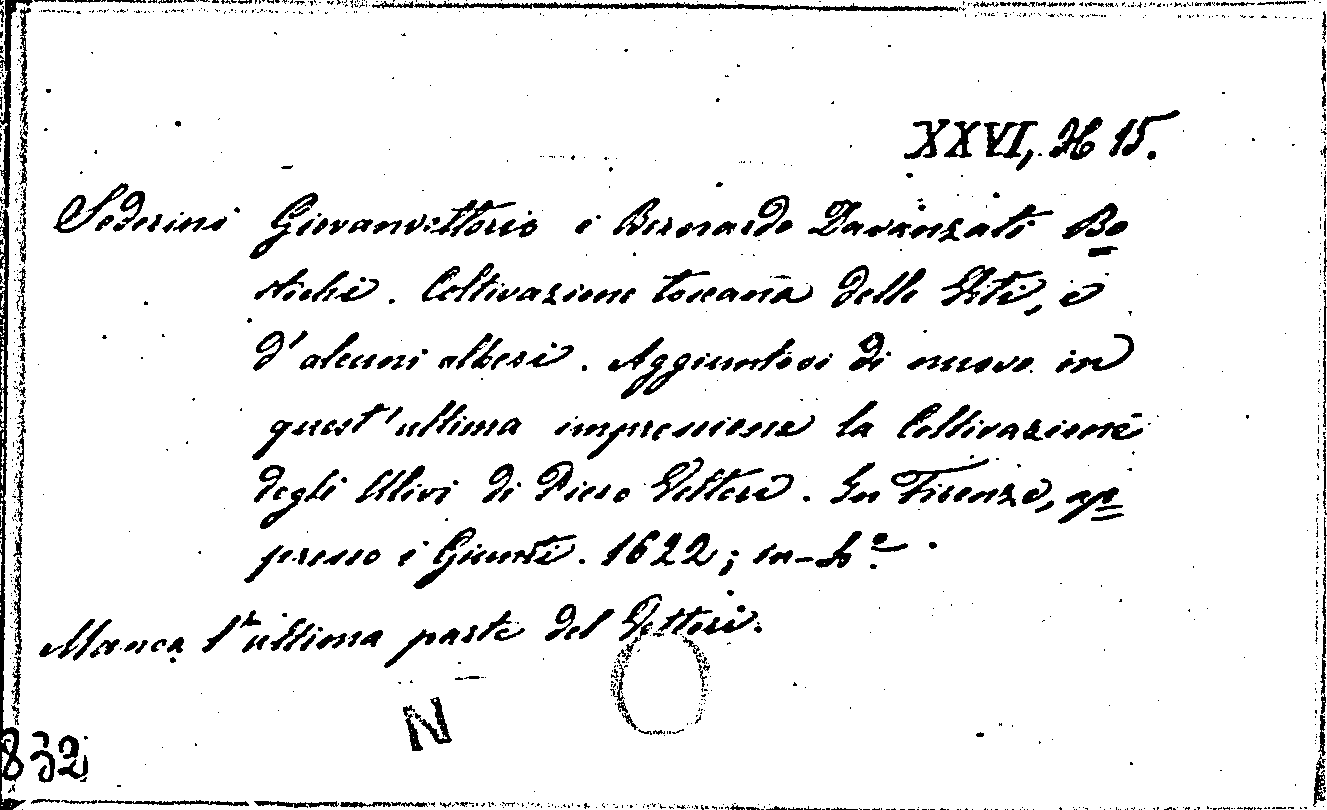 XXVI, H 15.
Soderini Giovanvettorio e Bernardo Davanzati Bo=
stichi. Coltivazione toscana delle Viti, e
d'alcuni alberi. Aggiuntovi di nuovo in
quest'ultima impressione la Coltivazione
degli Ulivi di Piero Vettori. In Firenze, ap=
presso i Giunti. 1622; in-4.°
Manca l'ultima parte del Vettori.
N O
832